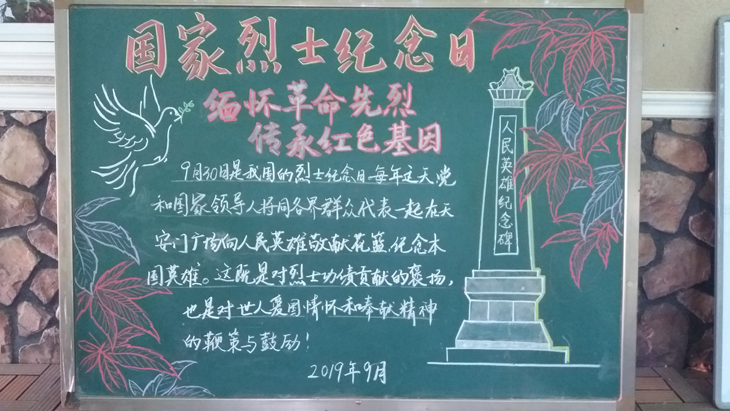 国家烈士纪念日
缅怀革命先烈
传承红色基因
9月30日是我国的烈士纪念日每年这天党
和国家领导人将同各界群众代表一起在天
安门广场向人民英雄敬献花篮.纪念本
国英雄。这既是对烈士功绩贡献的褒扬,
也是对世人爱国情怀和奉献精神
的鞭策与鼓励!
2019年9月
人民英雄纪念碑